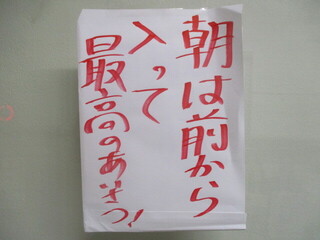 朝は前から
入って
最高のあいさつ!